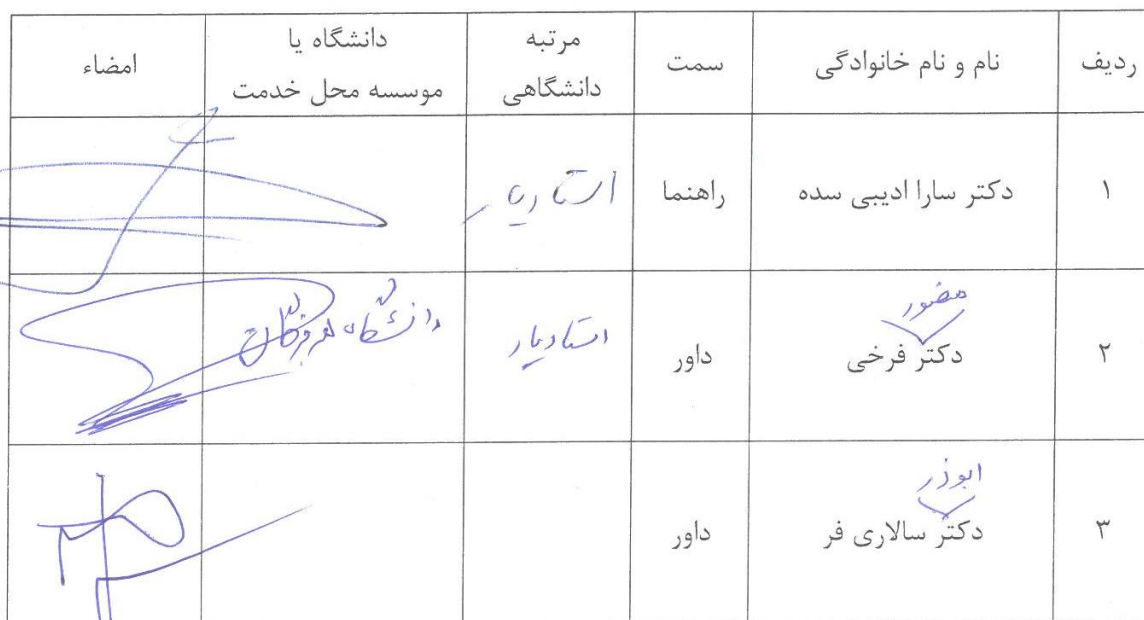 ردیف نام و نام خانوادگی سمت مرتبه دانشگاهی دانشگاه یا موسسه محل خدمت امضاء
۱ دکتر سارا ادیبی سده راهنما استادیار
۲ دکتر منصور فرخی داور استادیار دانشگاه
۳ دکتر ابوذر سالاری فر داور